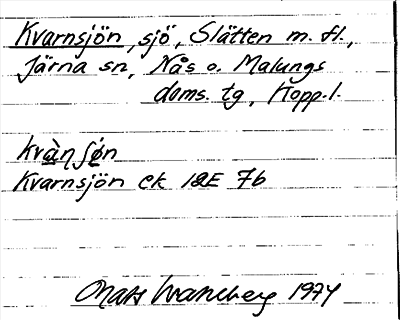 Kvarnsjön, sjö, Slätten m. fl.,
Järna sn, Nås o. Malungs
doms. tg, Kopp. l.
kvàṇʃǿn
Kvarnsjön ek 12E 7b
Mats Wahlberg 1974